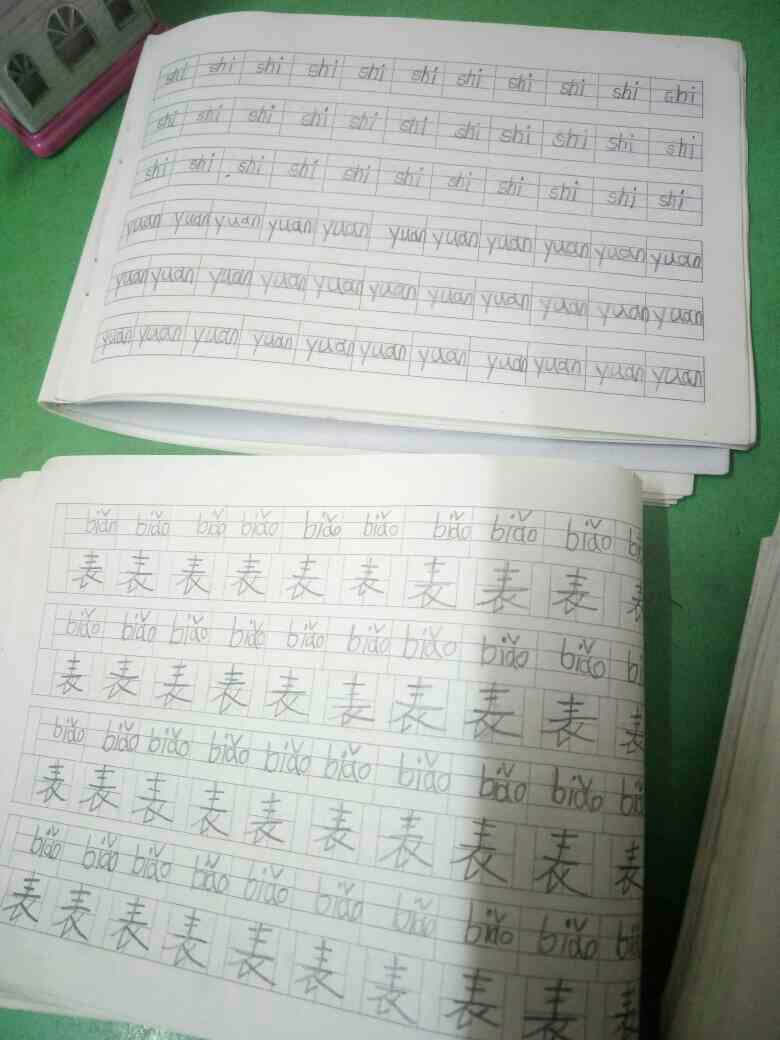 shi shi shi shi shi shi shi shi shi shi shi
shi shi shi shi shi shi shi shi shi shi shi
shi shi shi shi shi shi shi shi shi shi shi
yuan yuan yuan yuan yuan yuan yuan yuan yuan yuan yuan
yuan yuan yuan yuan yuan yuan yuan yuan yuan yuan yuan
yuan yuan yuan yuan yuan yuan yuan yuan yuan yuan yuan
biǎo biǎo biǎo biǎo biǎo biǎo biǎo biǎo biǎo
表 表 表 表 表 表 表 表 表 表
biǎo biǎo biǎo biǎo biǎo biǎo biǎo biǎo biǎo
表 表 表 表 表 表 表 表 表 表
biǎo biǎo biǎo biǎo biǎo biǎo biǎo biǎo biǎo
表 表 表 表 表 表 表 表 表 表
biǎo biǎo biǎo biǎo biǎo biǎo biǎo biǎo biǎo
表 表 表 表 表 表 表 表 表 表